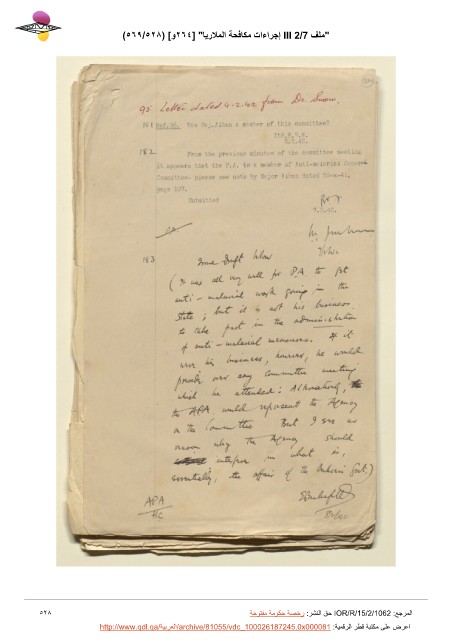 "ملف 2/7 III إجراءات مكافحة الملاريا" [٢٦٤و] (٥٦٩/٥٢٨)
95 Letter dated 4-2-42 from Dr. Snow.
181 Was Maj. Alban a member of this committee?
182 From the previous minutes of the committee meeting
it appears that the P.A. is a member of Anti-malarial Control
Committee. please see note by Major Alban dated
page 107.
Submitted
7.2.42.
183 Issue Draft below
(It was all very well for PA to get
anti-malarial work going in the
State; but it is not his business
to take part in the administration
of anti-malarial measures. If it
were his business, however, he would
preside over any Committee meeting
which he attended: Alternatively,
the APA could represent the Agency
on the Committee. But I see no
reason why the Agency should
interfere in what is,
essentially, the affair of the Bahrein Govt.)
APA
HC
المرجع: IOR/R/15/2/1062 حق النشر: رخصة حكومة مفتوحة
اعرض على مكتبة قطر الرقمية: http://www.qdl.qa/العربية/archive/81055/vdc_100026187245.0x000081
٥٢٨